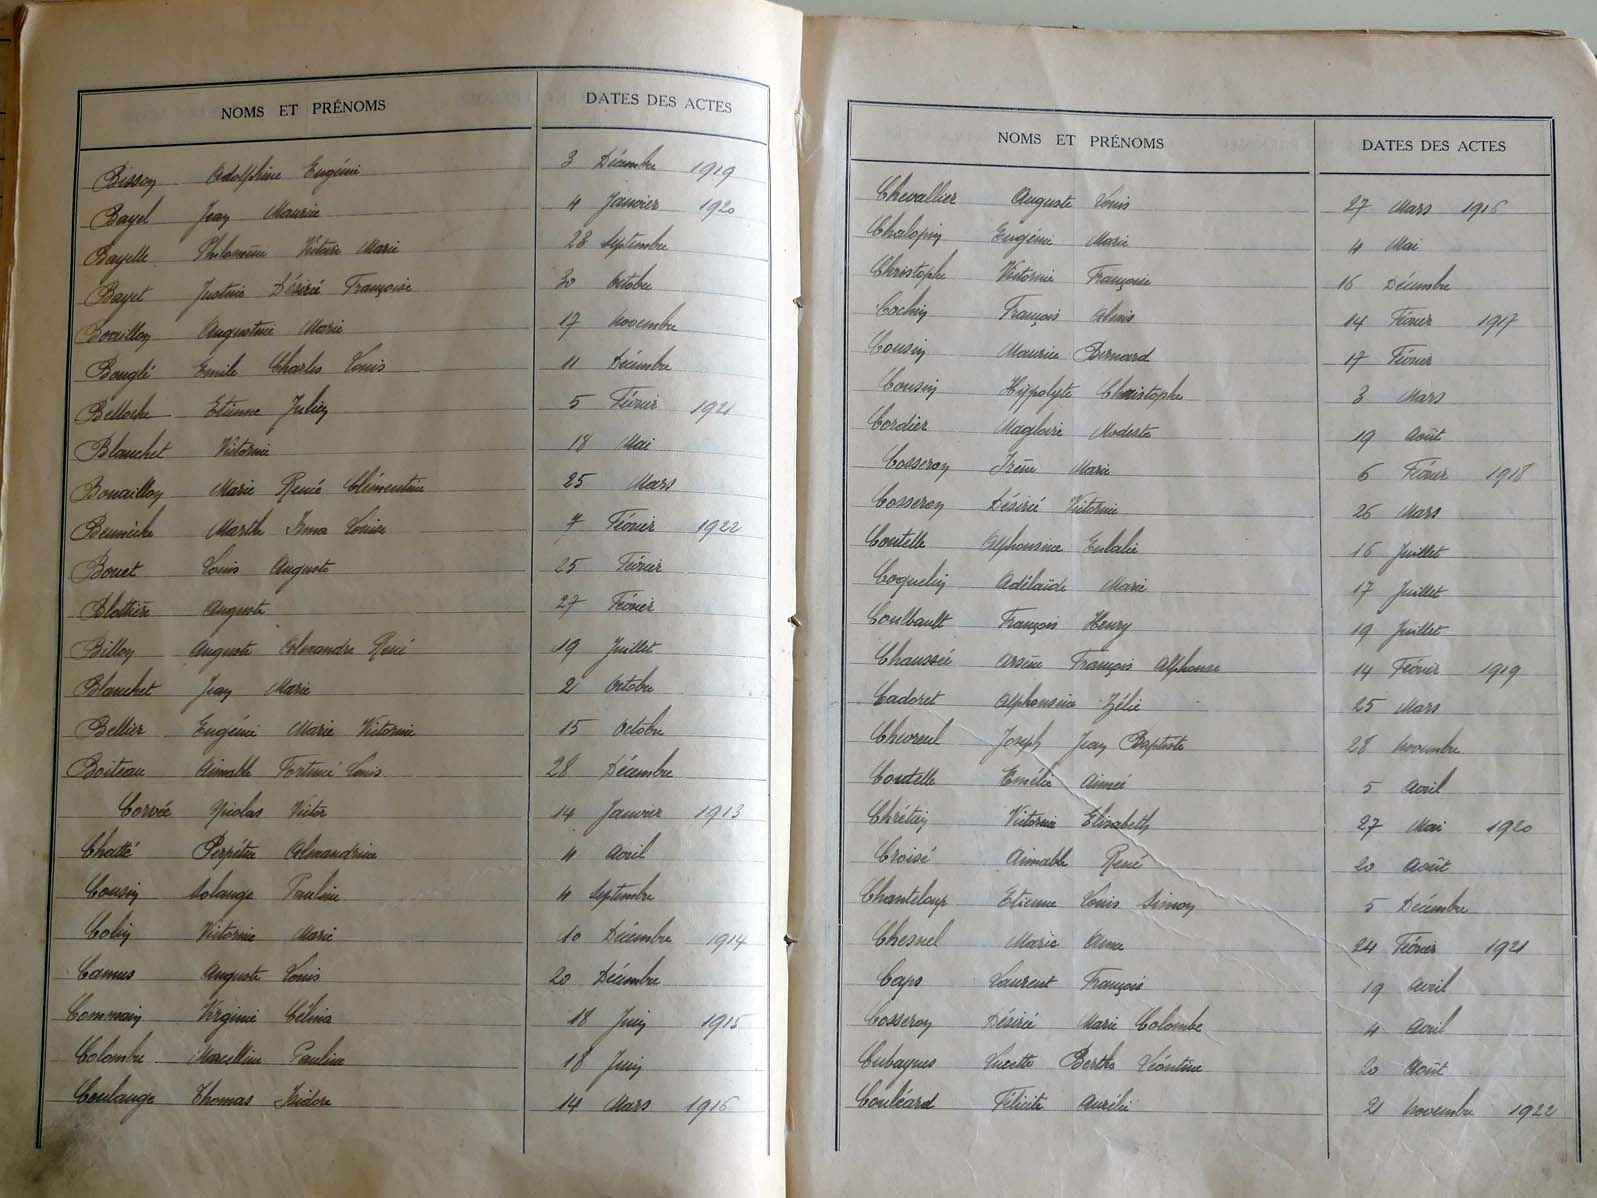 NOMS ET PRÉNOMS DATES DES ACTES
Bisson Adolphine Eugénie 3 Décembre 1919
Bayel Jean Maurice 4 Janvier 1920
Bayelle Philomène Victoire Marie 28 Septembre
Bayet Justine Désirée Françoise 30 Octobre
Augustine Marie 17 Novembre
Bouglé Emile Charles Louis 11 Décembre
Belloche Etienne Julien 5 Février 1921
Blanchet Victorine 18 Mai
Bouaillon Marie René Clémentine 25 Mars
Marthe Irma Louise 7 Février 1922
Bouet Louis Auguste 25 Février
Blottière Auguste 27 Février
Billon Auguste Alexandre René 19 Juillet
Blanchet Jean Marie 2 Octobre
Bellier Eugénie Marie Victorine 15 Octobre
Boiteau Aimable Fortuné Louis 28 Décembre
Corvée Nicolas Victor 14 Janvier 1913
Chatté Perpétue Alexandrine 4 Avril
Cousin Solange Pauline 4 Septembre
Colin Victorine Marie 10 Décembre 1914
Camus Auguste Louis 20 Décembre
Commain Virginie Célina 18 Juin 1915
Colombe Marcelline Pauline 18 Juin
Coulange Thomas Isidore 14 Mars 1916
NOMS ET PRÉNOMS DATES DES ACTES
Chevallier Auguste Louis 27 Mars 1916
Chalopin Eugénie Marie 4 Mai
Christophe Victorine Françoise 16 Décembre
Cochin François Alexis 14 Février 1917
Cousin Maurice Bernard 17 Février
Cousin Hippolyte Christophe 3 Mars
Cordier Magloire Modeste 19 Août
Cosseron Irène Marie 6 Février 1918
Cosseron Désirée Victorine 26 Mars
Coutelle Alphonsine Eulalie 16 Juillet
Coquelin Adélaïde Marie 17 Juillet
Coulbault François Henry 19 Juillet
Chaussée Arsène François Alphonse 14 Février 1919
Cadoret Alphonsine Zélie 25 Mars
Chevreul Joseph Jean Baptiste 28 Novembre
Coutelle Emélie Aimée 5 Avril
Chrétien Victorine Elisabeth 27 Mai 1920
Croisé Aimable René 20 Août
Chanteloup Etienne Louis Simon 5 Décembre
Chesnel Marie Anne 24 Février 1921
Caps Laurent François 19 Avril
Cosseron Désirée Marie Colombe 4 Avril
Cubaynes Lucette Berthe Léontine 20 Août
Couléard Félicité Aurélie 21 Novembre 1922